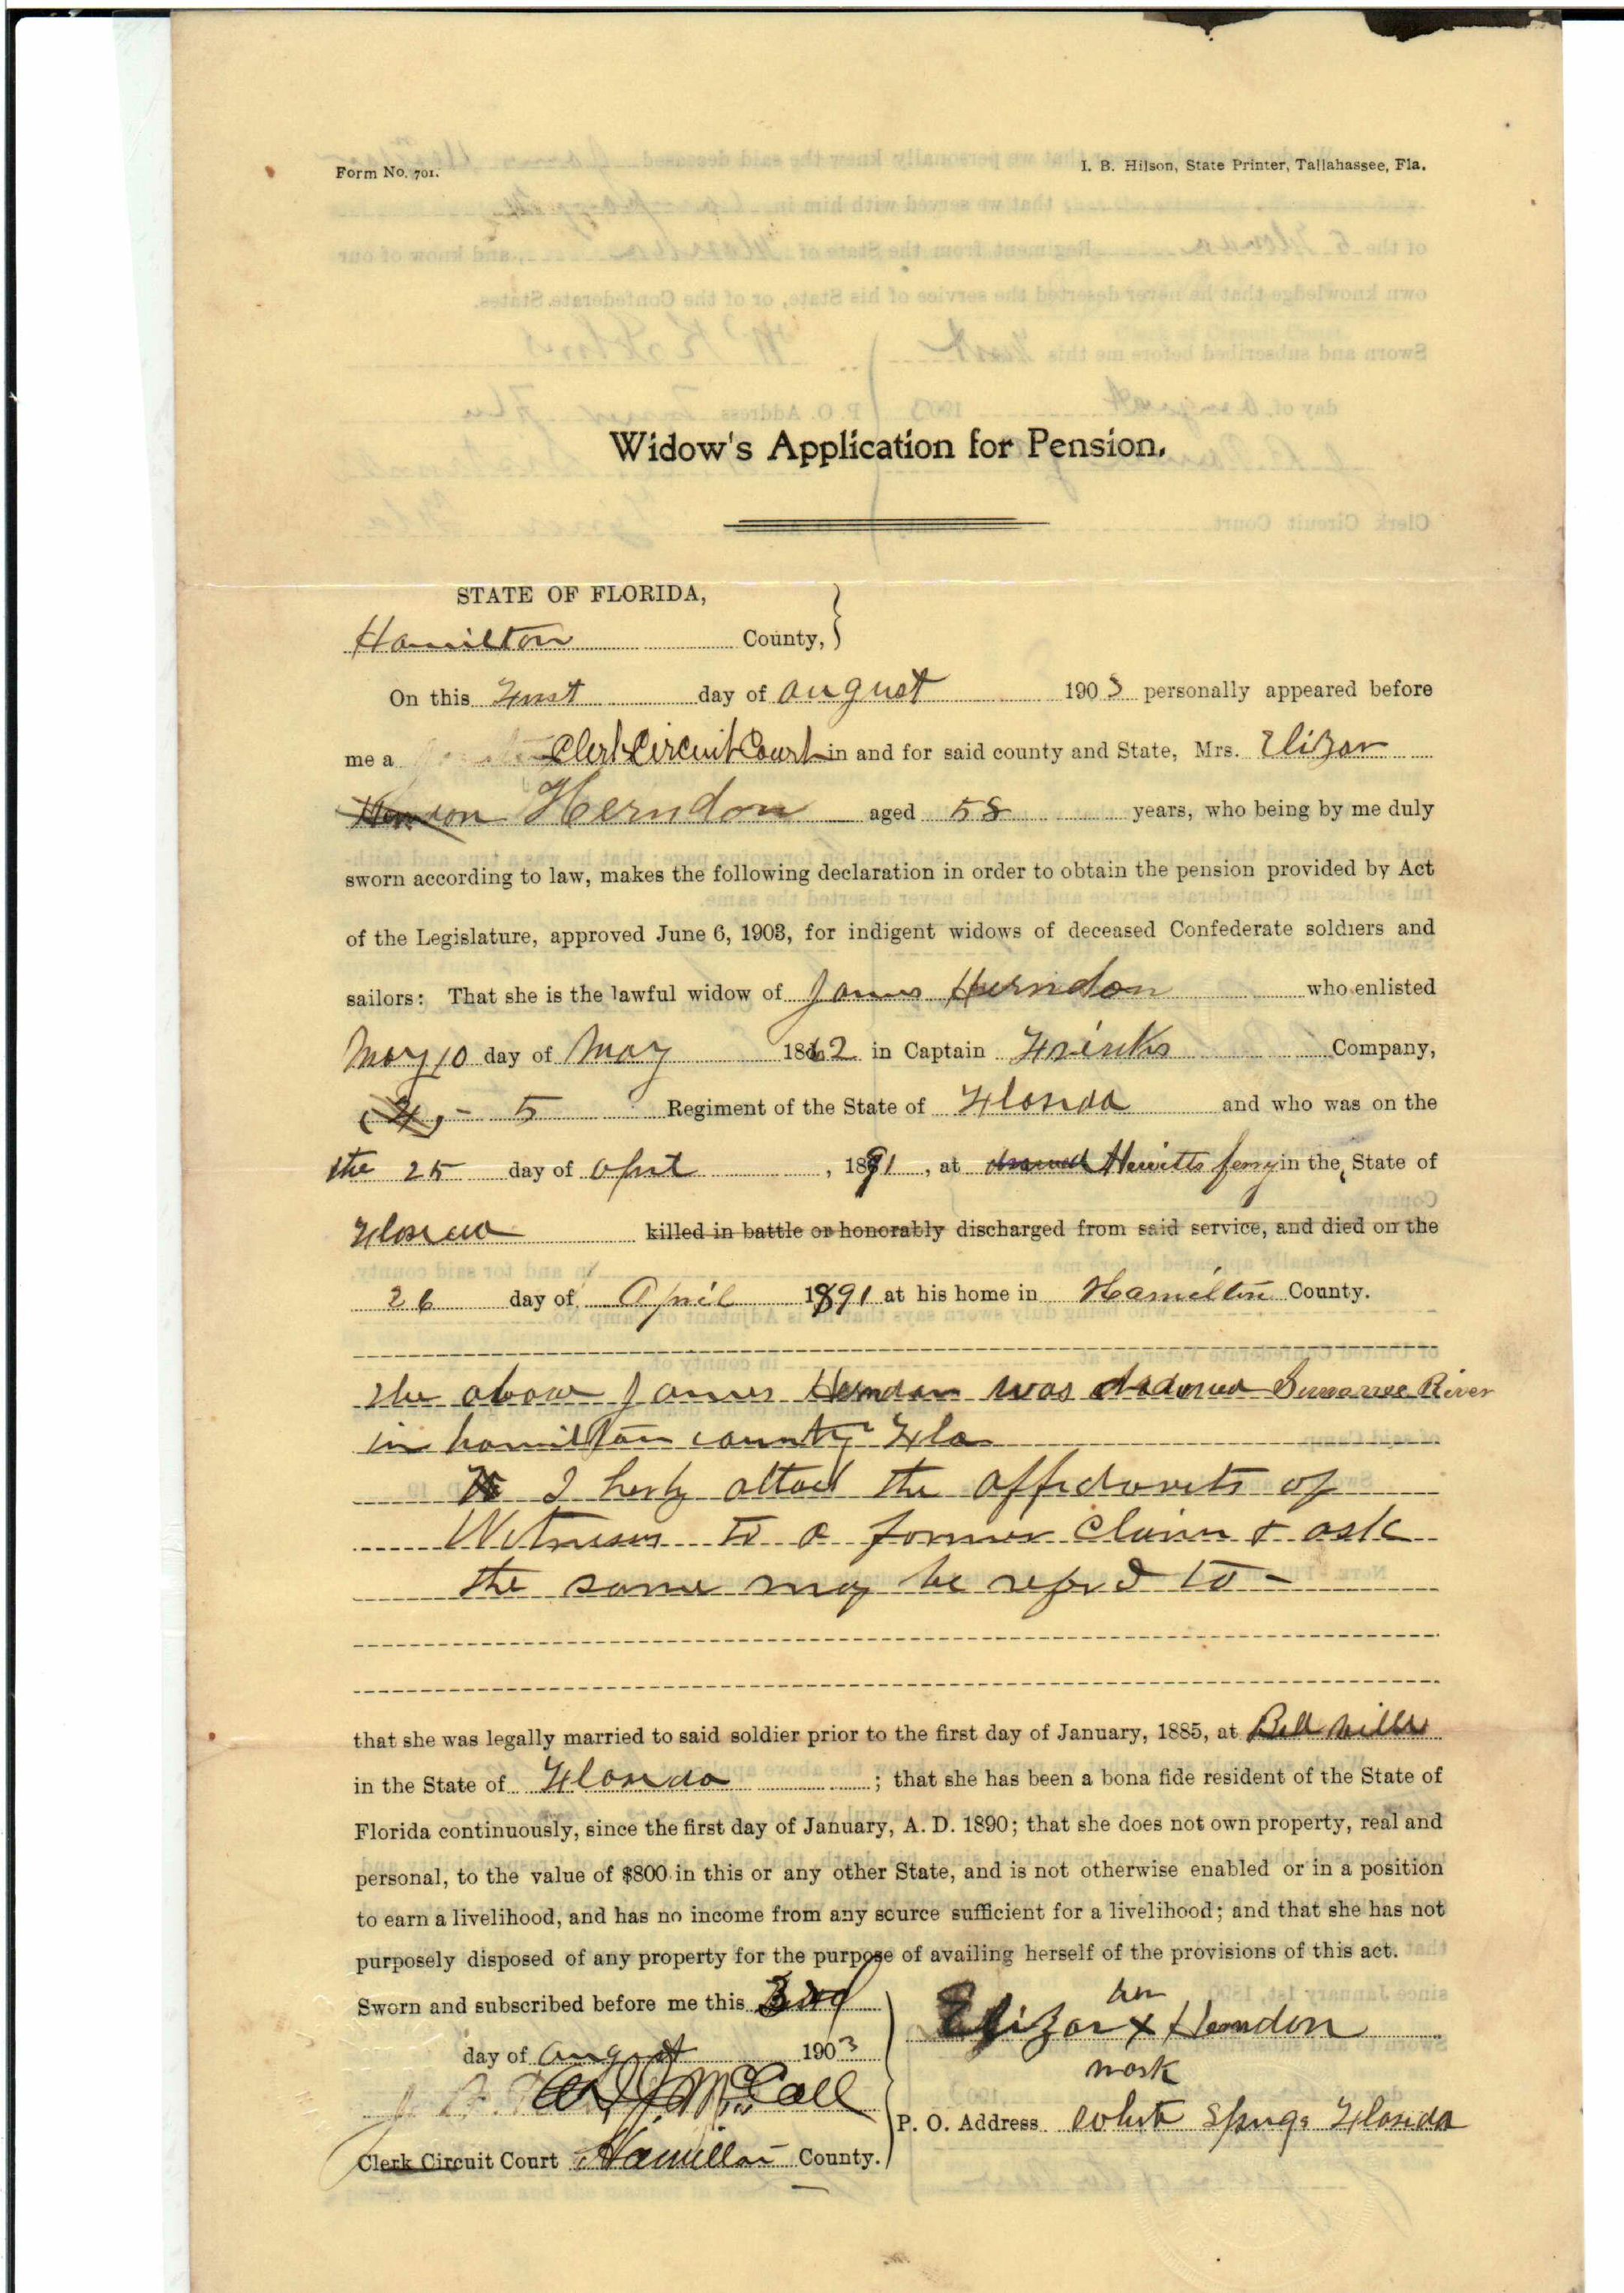 Form No. 701.
I. B. Hilson, State Printer, Tallahassee, Fla.
Widow's Application for Pension.
STATE OF FLORIDA,
Hamilton County,
On this First day of august 1903 personally appeared before
me a Clerk Circuit Court in and for said county and State, Mrs. Elizar
Herndon aged 58 years, who being by me duly
sworn according to law, makes the following declaration in order to obtain the pension provided by Act
of the Legislature, approved June 6, 1903, for indigent widows of deceased Confederate soldiers and
sailors: That she is the lawful widow of James Herndon who enlisted
May 10 day of May 1862 in Captain Frinks Company,
5 Regiment of the State of Florida and who was on the
the 25 day of , 1891, at Hewitts ferry in the State of
Florida killed in battle or honorably discharged from said service, and died on the
26 day of April 1891 at his home in Hamilton County.
the above James Herndon was Suwanee River
in hamilton county Fla
I herby attach the affidavits of
Witnesses to a former Claim & ask
the same may be referd to -
that she was legally married to said soldier prior to the first day of January, 1885, at Bellville
in the State of Florida ; that she has been a bona fide resident of the State of
Florida continuously, since the first day of January, A. D. 1890; that she does not own property, real and
personal, to the value of $800 in this or any other State, and is not otherwise enabled or in a position
to earn a livelihood, and has no income from any source sufficient for a livelihood; and that she has not
purposely disposed of any property for the purpose of availing herself of the provisions of this act.
Sworn and subscribed before me this 3rd
day of august 1903
McCall
Clerk Circuit Court Hamilton County.
her
Elizar x Herndon
mark
P. O. Address White Springs Florida